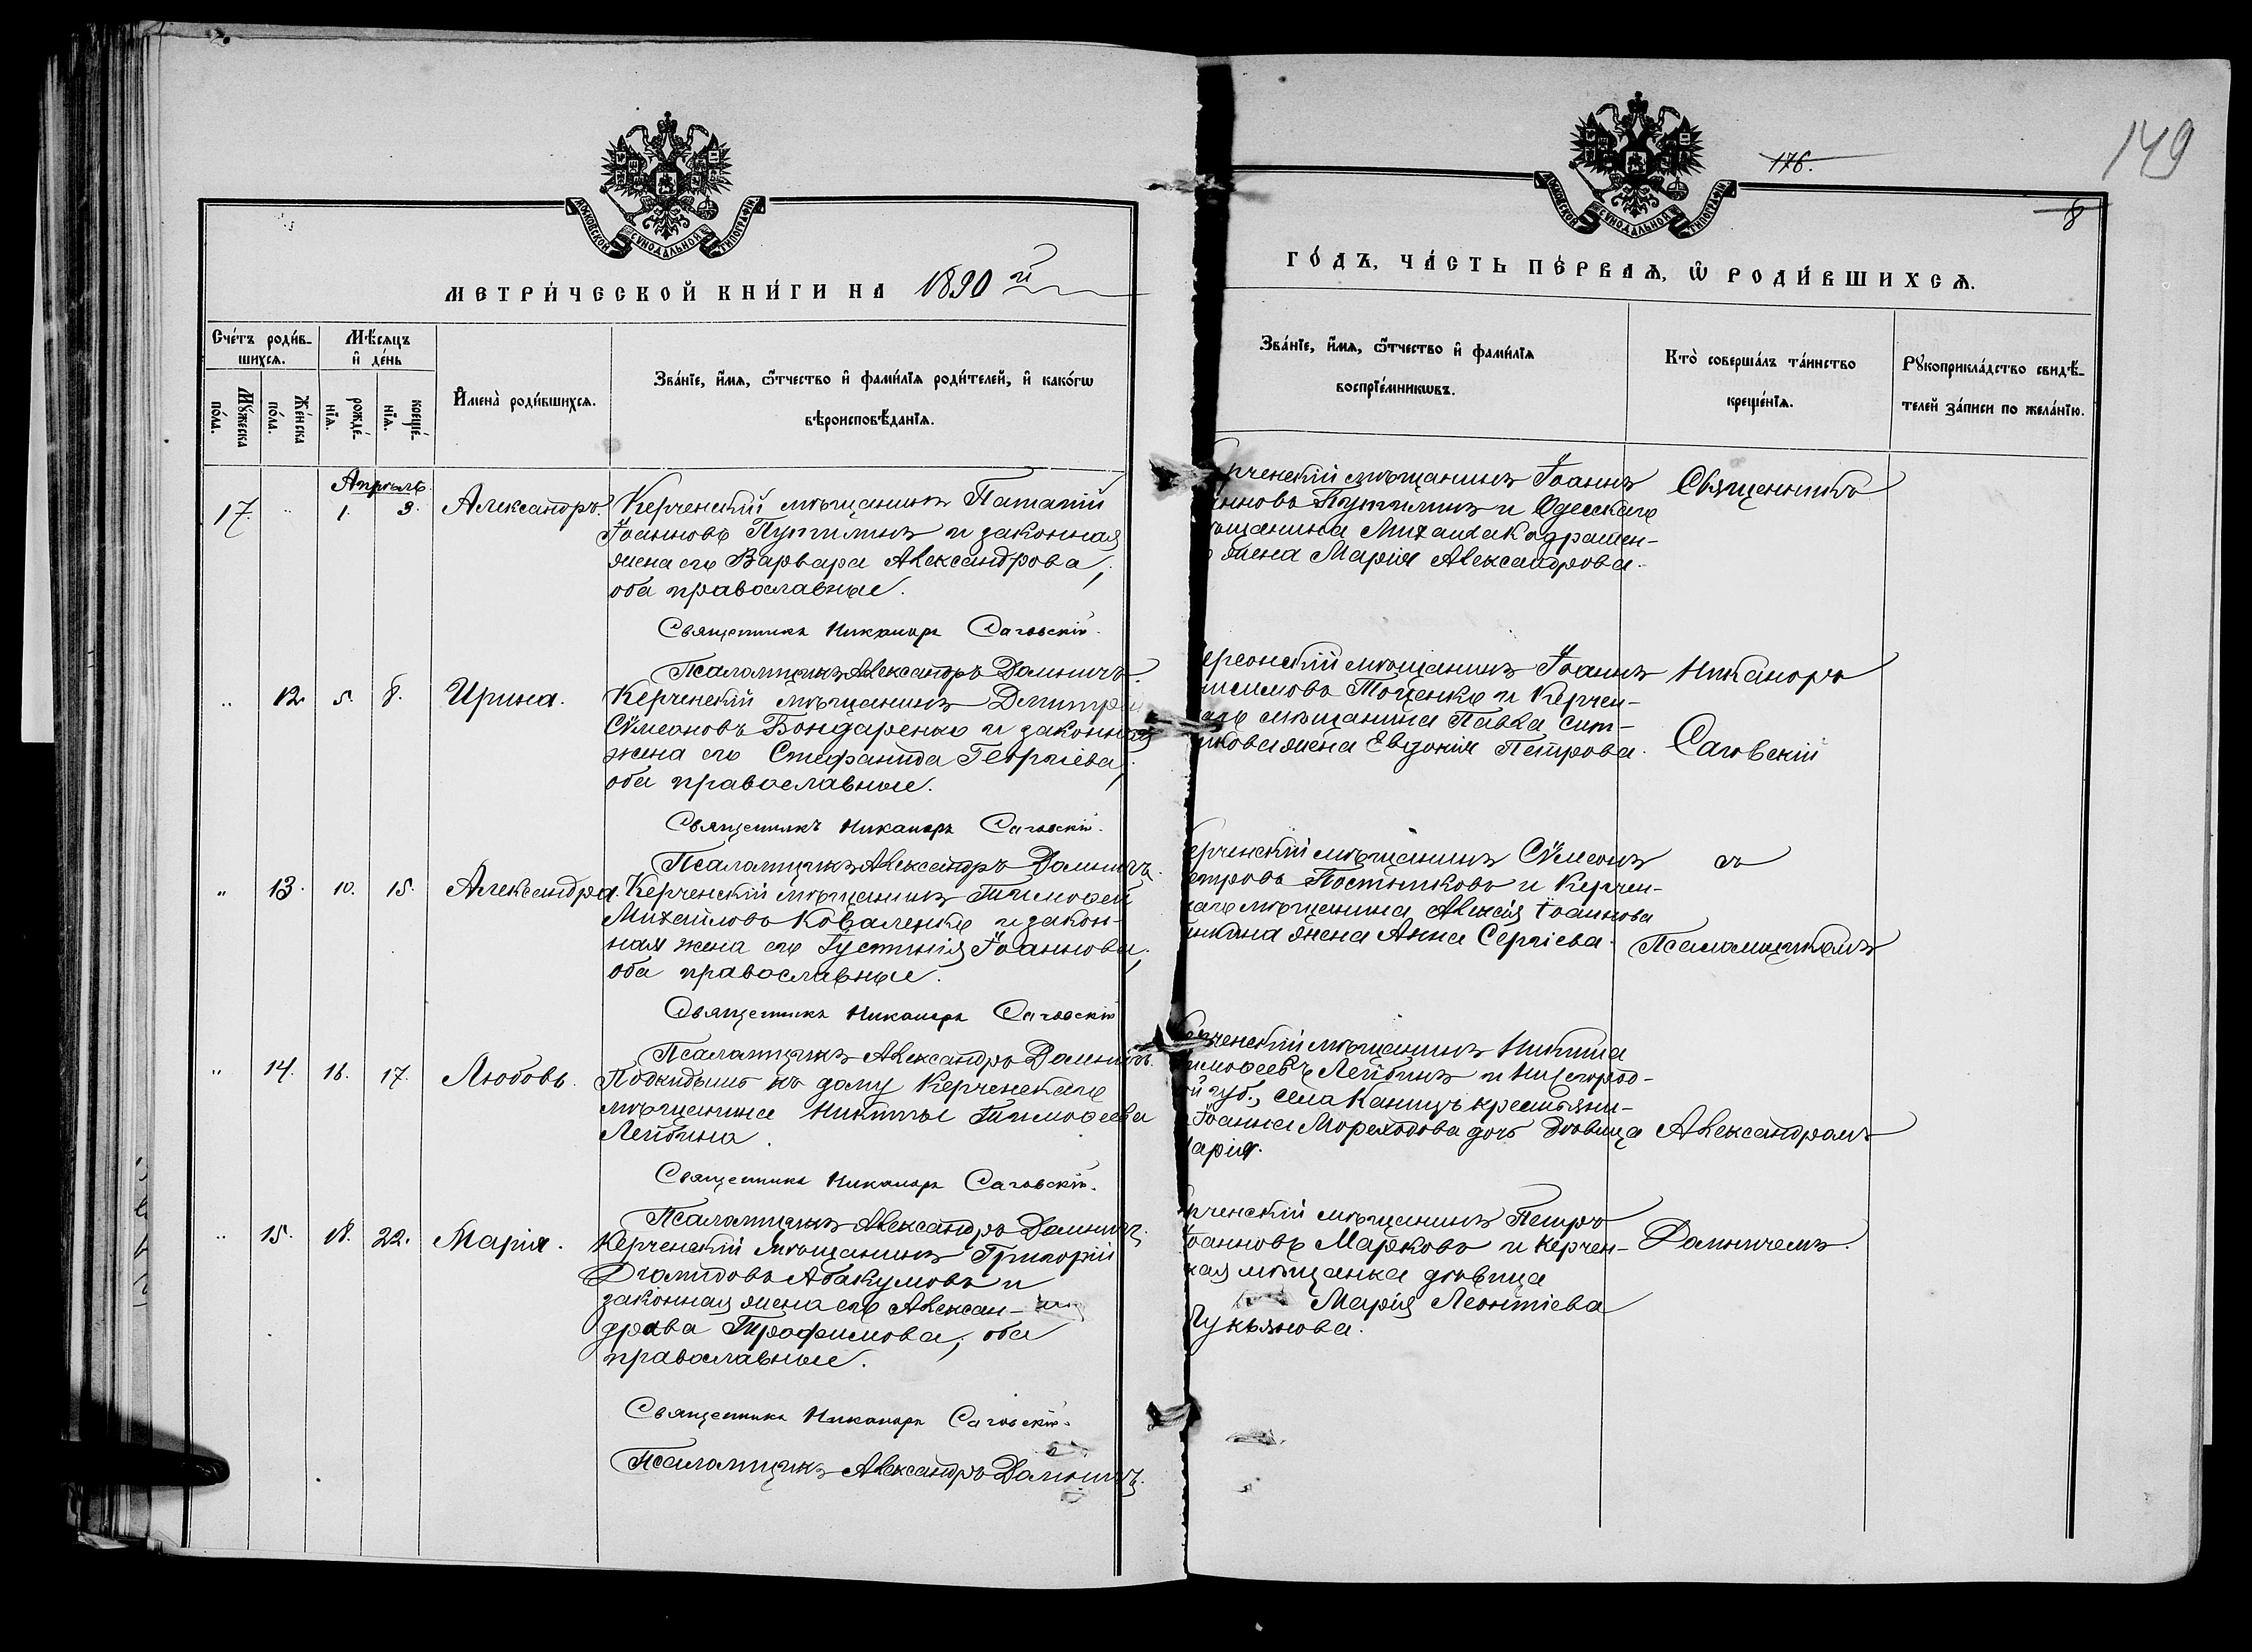 176.
149
8
МОСКОВСКОЙ СѴНОДАЛЬНОЙ ТИПОГРАФІИ
МОСКОВСКОЙ СѴНОДАЛЬНОЙ ТИПОГРАФІИ
МЕТРИ́ЧЕСКОЙ КНИ́ГИ НА 1890 й
ГО́ДЪ, ЧА́СТЬ ПЕ́РВАѦ, Ѡ РОДИ́ВШИХСѦ.
Сче́тъ роди́в-
шихсѧ.
Мѣ́сяцъ
и҆ де́нь
Мꙋ́жеска
по́ла.
Же́нска
по́ла.
рожде́-
нїѧ.
креще́-
нїѧ.
И҆мена̀ роди́вшихсѧ.
Зва́нїе, и҆́мѧ, ѻ҆́тчество и҆ фами́лїѧ роди́телей, и҆ како́гѡ
вѣроисповѣ́данїѧ.
Зва́нїе, и҆́мѧ, ѻ҆́тчество и҆ фами́лїѧ
воспрїе́мникѡвъ.
Кто̀ соверша́лъ та́инство
креще́нїѧ.
Рꙋкоприкла́дство свидѣ́-
телей за́писи по жела́нїю.
Апрѣль.
17. " 1. 3. Александръ.
Керченскій мѣщанинъ Патапій
Іоанновъ Путилинъ и законная
жена его Варвара Александрова,
оба православные.
Священникъ Никаноръ Саговскій.
Псаломщикъ Александръ Далничъ.
рченскій мѣщанинъ Іоаннъ
нновъ Путилинъ и Одесскаго
ѣщанина Михаила Кадрамен-
жена Марія Александрова.
Священникъ
" 12. 5. 8. Ирина.
Керченскій мѣщанинъ Димитрі
Сѵмеоновъ Бондаренко и законная
жена его Стефанида Георгіева,
оба православные.
Священникъ Никаноръ Саговскій.
Псаломщикъ Александръ Далничъ.
ерсонскій мѣщанинъ Іоаннъ
исимовъ Тоценко и Керчен-
аго мѣщанина Павла Сит-
никова жена Евдокія Петрова.
Никаноръ
Саговскій
" 13. 10. 15. Александра.
Керченскій мѣщанинъ Тимоѳей
Михайловъ Коваленко и закон-
ная жена его Іустинія Іоаннова,
оба православные.
Священникъ Никаноръ Саговскій
Псаломщикъ Александръ Далничъ.
ерченскій мѣщанинъ Сѵмеонъ
етровъ Постниковъ и Керчен-
каго мѣщанина Алексія Іоаннова
жена Анна Сергіева.
съ
Псаломщикомъ
" 14. 16. 17. Любовь.
Подкидышъ къ дому Керченскаго
мѣщанина Никиты Тимоѳеева
Лейбина.
Священникъ Никаноръ Саговскій.
Псаломщикъ Александръ Далничъ.
рченскій мѣщанинъ Никита
имоѳеевъ Лейбинъ и Нижегород-
й губ., села Каницъ крестьяни-
Іоанна Мореходова дочь дѣвица
арія.
Александромъ
" 15. 18. 22. Марія.
Керченскій мѣщанинъ Григорій
Діомидовъ Абакумовъ и
законная жена его Алексан-
дрова Трофимова, оба
православные.
Священникъ Никаноръ Саговскій.
Псаломщикъ Александръ Далничъ.
рченскій мѣщанинъ Петръ
Іоанновъ Марковъ и Керчен-
кая мѣщанка дѣвица
Марія Леонтіева
Лукьянова.
Далничемъ.